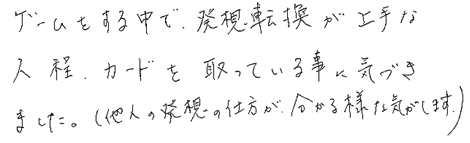 ゲームをする中で、発想・転換が上手な
人程、カードを取っている事に気づき
ました。(他人の発想の仕方が、分かる様な気がします。)